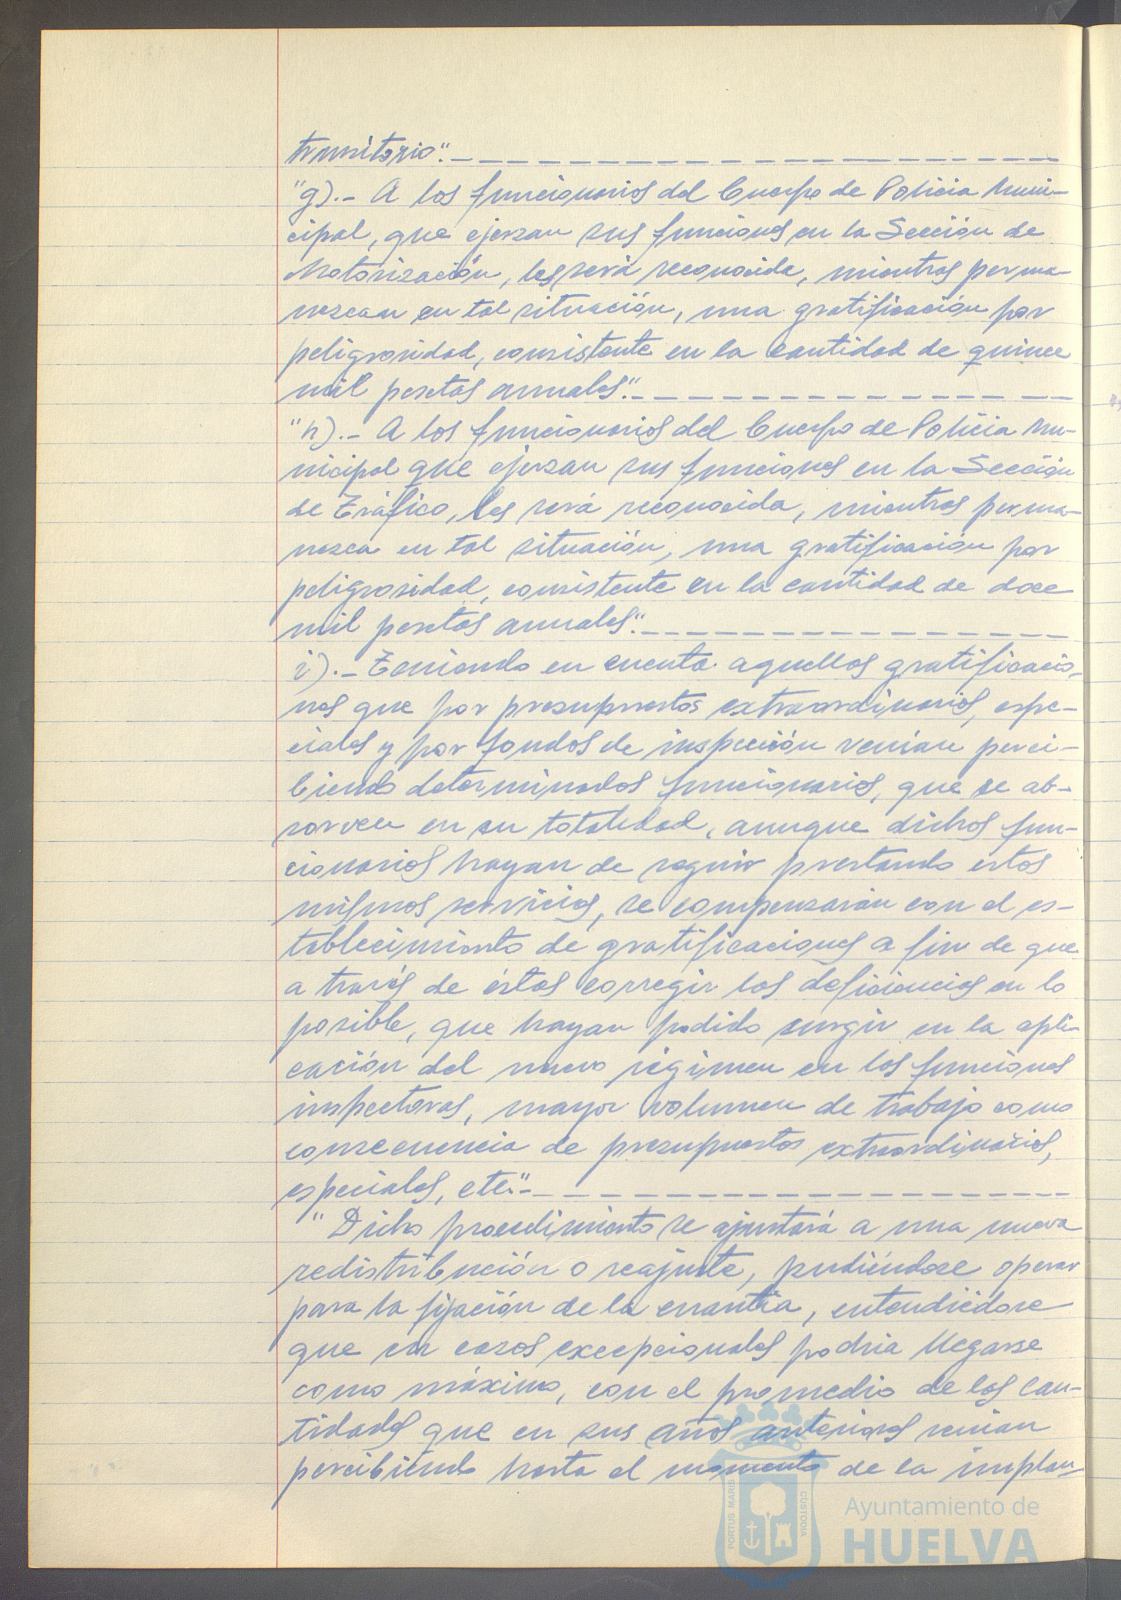 transitorio".-
"g).- A los funcionarios del Cuerpo de Policia Muni-
cipal, que ejerzan sus funciones en la Sección de
Motorización, les será reconocida, mientras perma-
nezcan en tal situación, una gratificación por
peligrosidad, consistente en la cantidad de quince
mil pesetas anuales".-
"h).- A los funcionarios del Cuerpo de Policia Mu-
nicipal que ejerzan sus funciones en la Sección
de Tráfico, les será reconocida, mientras perma-
nezca en tal situación, una gratificación por
peligrosidad, consistente en la cantidad de doce
mil pesetas anuales".-
i).- Teniendo en cuenta aquellas gratificacio-
nes que por presupuestos extraordinarios, espe-
ciales y por fondos de inspección venian perci-
biendo determinados funcionarios, que se ab-
sorven en su totalidad, aunque dichos fun-
cionarios hayan de seguir prestando estos
mismos servicios, se compensarán con el es-
tablecimiento de gratificaciones a fin de que
a través de éstas corregir las deficiencias en lo
posible, que hayan podido surgir en la apli-
cación del nuevo régimen en las funciones
inspectoras, mayor volumen de trabajo como
consecuencia de presupuestos extraordinarios,
especiales, etc".-
"Dicho procedimiento se ajustará a una nueva
redistribución o reajuste, pudiéndose operar
para la fijación de la cuantia, entendiédose
que en casos excepcionales podria llegarse
como máximo, con el promedio de las can-
tidades que en sus años anteriores venian
percibiendo hasta el momento de la implan-
PORTUS MARIS
CUSTODIA
Ayuntamiento de
HUELVA